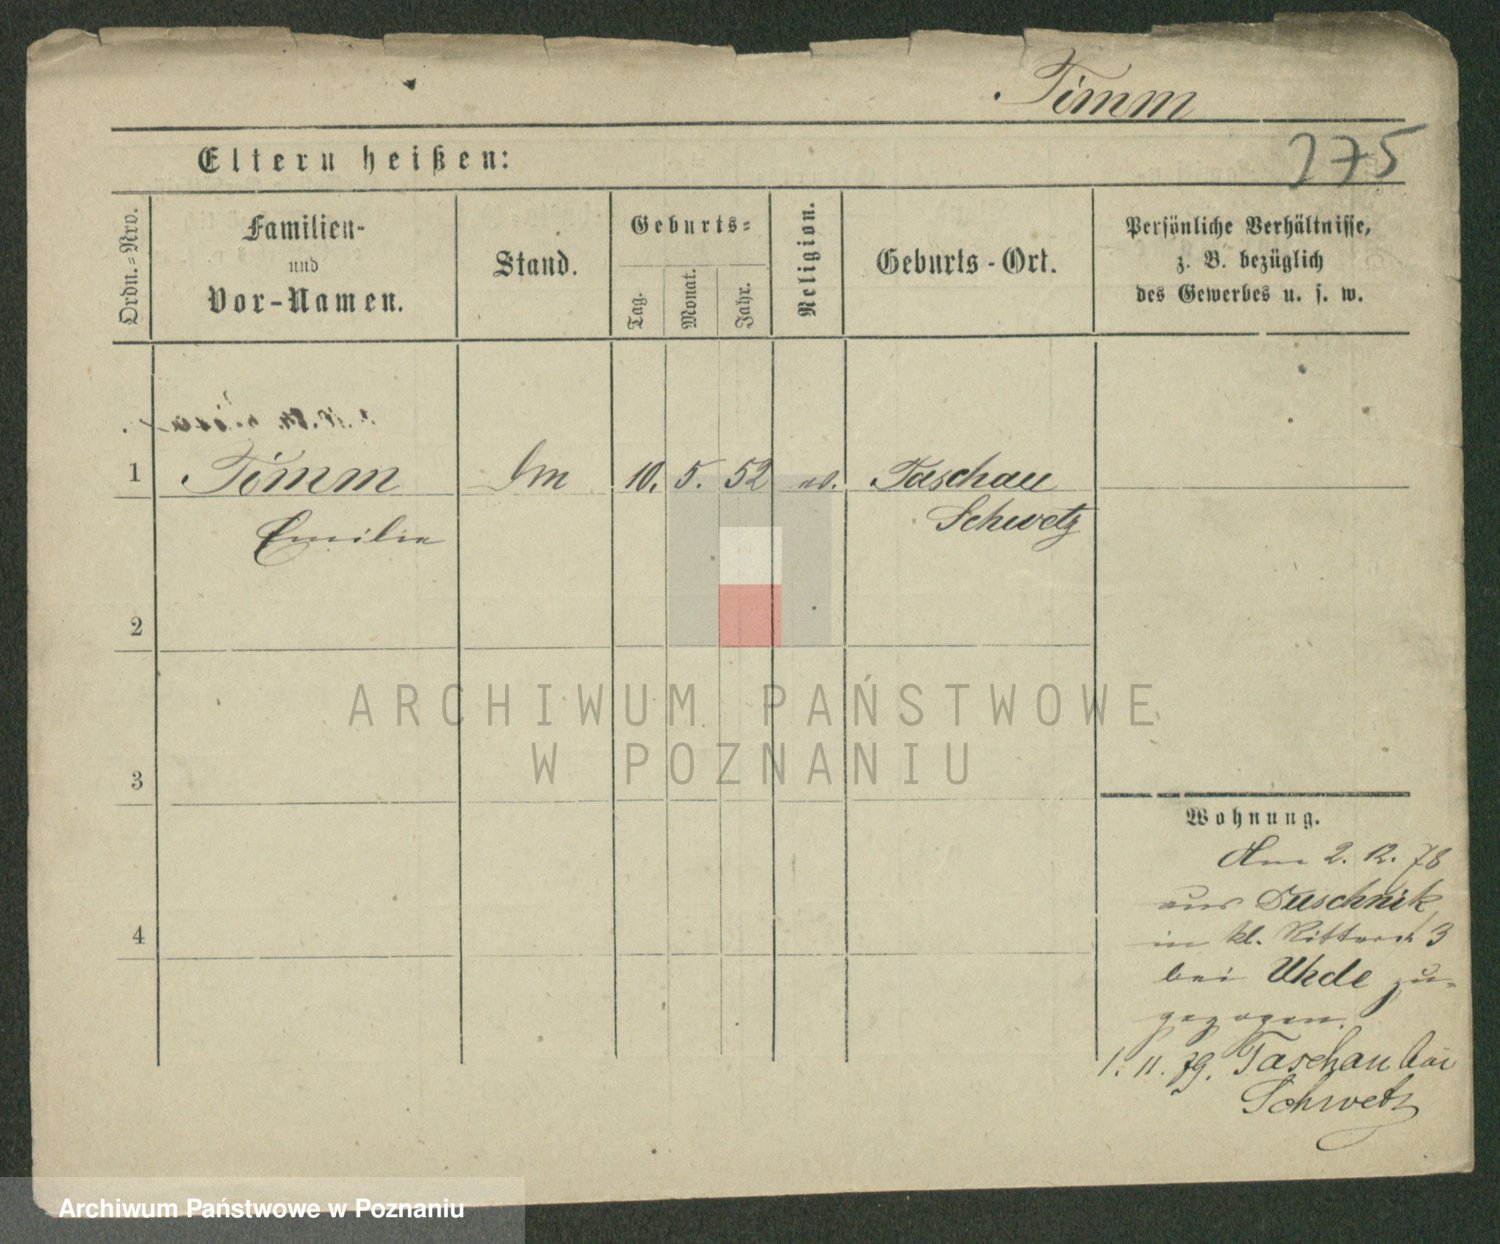 Timm
275
Eltern heißen:
Ordn.=Nro.
Familien-
und
Vor-Namen.
Stand.
Geburts=
Tag.
Monat.
Jahr.
Religion.
Geburts-Ort.
Persönliche Verhältnisse,
z. B. bezüglich
des Gewerbes u. s. w.
1 Timm 10. 5. 52 Taschau
Emilie Schwetz
2
3
4
Wohnung.
Am 2. 12. 78
aus Duschnik
in kl. Ritterst 3
bei Uhde zu=
gezogen.
1. 11. 79. Taschau bei
Schwetz
ARCHIWUM PAŃSTWOWE
W POZNANIU
Archiwum Państwowe w Poznaniu